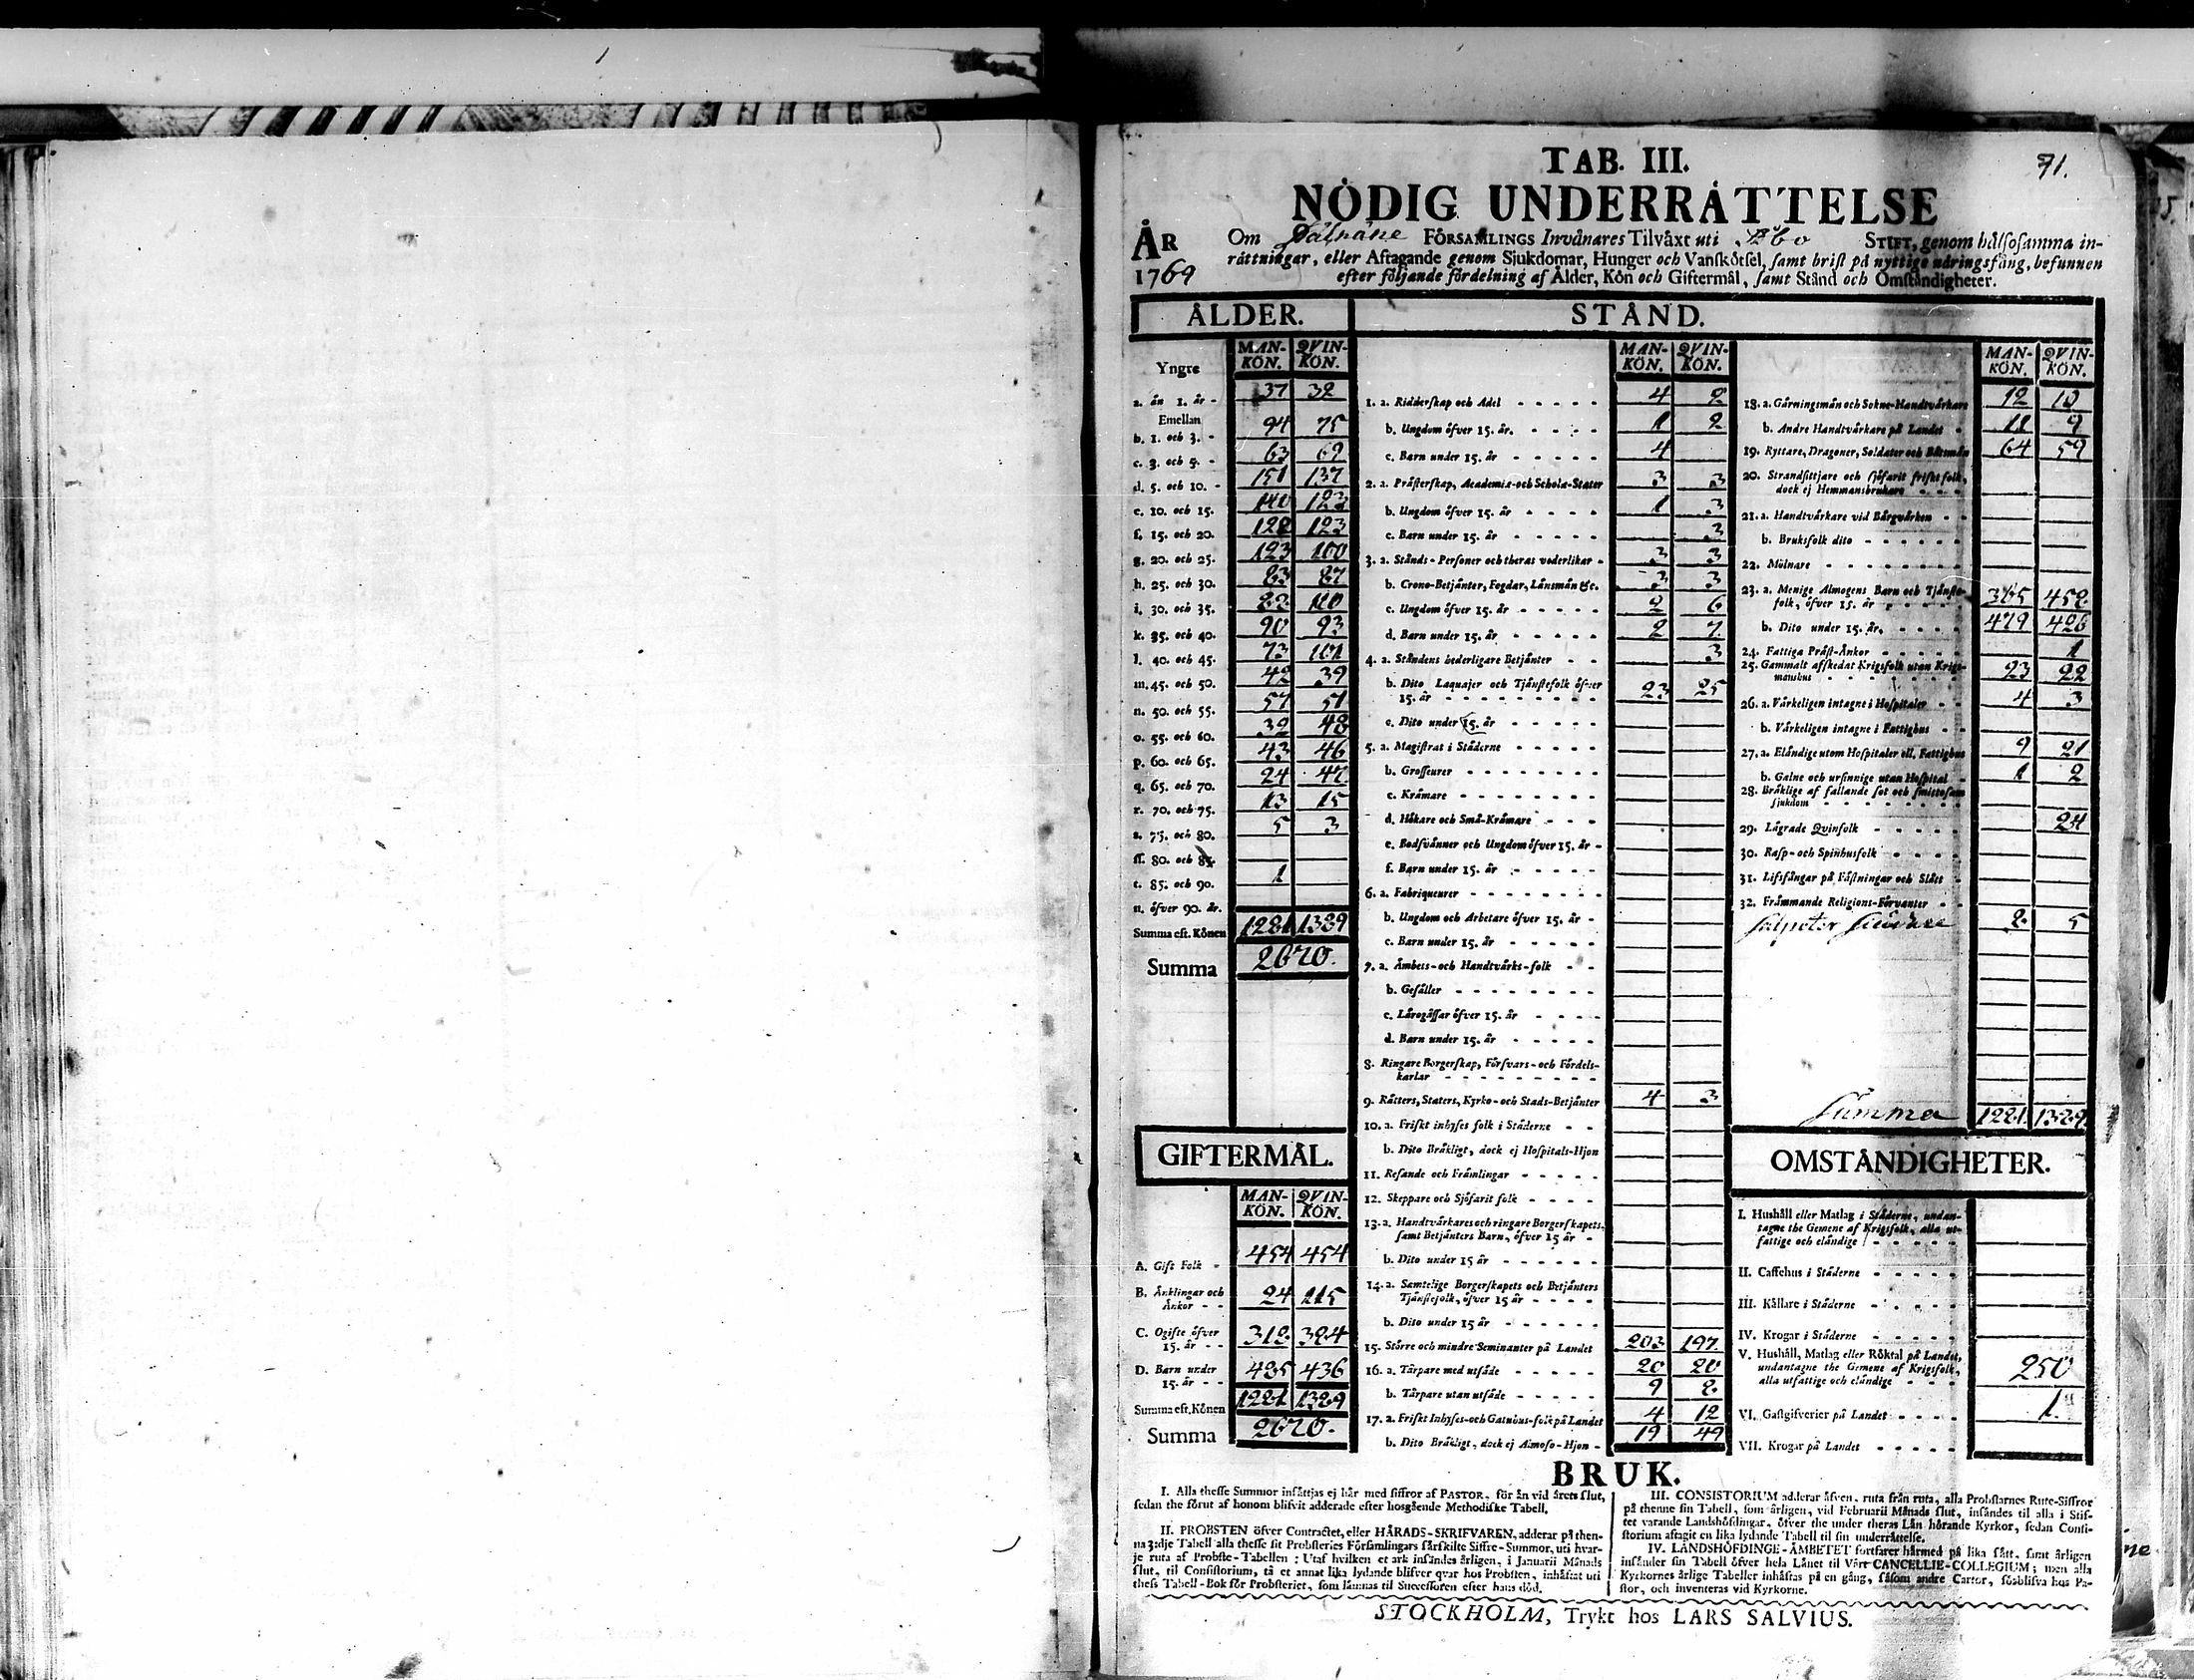 91.
TAB. III.
NÖDIG UNDERRÄTTELSE
ÅR 1769
Om FÖRSAMLINGS Invånares Tilväxt uti Åbo STIFT, genom hälsosamma in-
rättningar, eller Aftagande genom Sjukdomar, Hunger och Vanskötsel, samt brist på nyttige näringsfång, befunnen
efter följande fördelning af Ålder, Kön och Giftermål, samt Stånd och Omständigheter.
ÅLDER.
MAN-KÖN. QVIN-KÖN.
Yngre
a. än 1. år - 37 32
Emellan
b. 1. och 3. - 94 75
c. 3. och 5. - 63 69
d. 5. och 10. - 151 137
e. 10. och 15. 140 123
f. 15. och 20. 128 123
g. 20. och 25. 123 100
h. 25. och 30. 83 87
i. 30. och 35. 82 110
k. 35. och 40. 90 93
l. 40. och 45. 73 101
m. 45. och 50. 42 39
n. 50. och 55. 57 51
o. 55. och 60. 32 48
p. 60. och 65. 43 46
q. 65. och 70. 24 47
r. 70. och 75. 13 15
s. 75. och 80. 5 3
ss. 80. och 85.
t. 85. och 90. 1
u. öfver 90. år.
Summa eft. Könen 1281 1389
Summa 2670.
GIFTERMÅL.
MAN-KÖN. QVIN-KÖN.
A. Gift Folk - 454 454
B. Änklingar och
Änkor - - 24 115
C. Ogifte öfver
15. år - - 318 384
D. Barn under
15. år - - 485 436
Summa eft. Könen 1281 1389
Summa 2670.
STÅND.
MAN-KÖN. QVIN-KÖN.
1. a. Ridderskap och Adel 4 2
b. Ungdom öfver 15. år. 1 2
c. Barn under 15. år 4
2. a. Prästerskap, Academiæ-och Scholæ-Stater 3 3
b. Ungdom öfver 15. år 1 3
c. Barn under 15. år 3
3. a. Stånds-Personer och theras vederlikar 3 3
b. Crono-Betjänter, Fogdar, Länsmän &c. 3 3
c. Ungdom öfver 15. år 2 6
d. Barn under 15. år 2 7
4. a. Ståndens hederligare Betjänter 3
b. Dito Laquajer och Tjänstefolk öfver
15. år 23 25
c. Dito under 15. år
5. a. Magistrat i Städerne
b. Grosseurer
c. Krämare
d. Hökare och Små-Krämare
e. Bodsvänner och Ungdom öfver 15. år
f. Barn under 15. år
6. a. Fabriqueurer
b. Ungdom och Arbetare öfver 15. år
c. Barn under 15. år
7. a. Ämbets-och Handtvärks-folk
b. Gesäller
c. Lärogåssar öfver 15. år
d. Barn under 15. år
8. Ringare Borgerskap, Försvars-och Fördels-
karlar
9. Rätters, Staters, Kyrko-och Stads-Betjänter 4 3
10. a. Friskt inhyses folk i Städerne
b. Dito Bräkligt, dock ej Hospitals-Hjon
11. Resande och Främlingar
12. Skeppare och Sjöfarit folk
13. a. Handtvärkares och ringare Borgerskapets,
samt Betjänters Barn, öfver 15 år
b. Dito under 15 år
14. a. Samtelige Borgerskapets och Betjänters
Tjänstefolk, öfver 15 år
b. Dito under 15 år
15. Större och mindre Seminanter på Landet 203 197.
16. a. Torpare med utsäde 20 20
b. Torpare utan utsäde 9 8.
17. a. Friskt Inhyses-och Gatuhus-folk på Landet 4 12
b. Dito Bräkligt, dock ej Almoso-Hjon 19 49
MAN-KÖN. QVIN-KÖN.
18. a. Gärningsmän och Sokne-Handtvärkare 12 10
b. Andre Handtvärkare på Landet 11 9
19. Ryttare, Dragoner, Soldater och Båtsmän 64 59
20. Strandsittjare och sjöfarit friskt folk,
dock ej Hemmansbrukare
21. a. Handtvärkare vid Bärgvärken
b. Bruksfolk dito
22. Mölnare
23. a. Menige Almogens Barn och Tjänste-
folk, öfver 15. år 365 458
b. Dito under 15. år. 479 426
24. Fattiga Präst-Änkor 1
25. Gammalt afskedat Krigsfolk utan Krigs-
manshus 23 22
26. a. Värkeligen intagne i Hospitaler 4 3
b. Värkeligen intagne i Fattighus
27. a. Eländige utom Hospitaler ell. Fattighus 9 21
b. Galne och ursinnige utan Hospital 1 2
28. Bräklige af fallande sot och smittosam
sjukdom
29. Lägrade Qvinfolk 24
30. Rasp-och Spinhusfolk
31. Lifsfångar på Fästningar och Slått
32. Främmande Religions-Förvanter
Salpeter 8. 5
Summa 1281. 1389
OMSTÄNDIGHETER.
I. Hushåll eller Matlag i Städerne, undan-
tagne the Gemene af Krigsfolk, alla ut-
fattige och eländige
II. Caffehus i Städerne
III. Källare i Städerne
IV. Krogar i Städerne
V. Hushåll, Matlag eller Röktal på Landet,
undantagne the Gemene af Krigsfolk,
alla utfattige och eländige 250
VI. Gästgifverier på Landet 1.
VII. Krogar på Landet
BRUK.
I. Alla thesse Summor insättjas ej här med siffror af PASTOR, för än vid årets slut,
sedan the förut af honom blifvit adderade efter hosgående Methodiske Tabell.
II. PROBSTEN öfver Contractet, eller HÄRADS-SKRIFVAREN, adderar på then-
na 3:dje Tabell alla thesse sit Probsteries Församlingars särskilte Siffre-Summor, uti hvar-
je ruta af Probste-Tabellen: Utaf hvilken et ark insändes årligen, i Januarii Månads
slut, til Consistorium, tå et annat lika lydande blifver qvar hos Probsten, inhäftat uti
thess Tabell-Bok för Probsteriet, som lämnas til Successoren efter hans död.
III. CONSISTORIUM adderar äfven, ruta från ruta, alla Probstarnes Rute-Siffror
på thenne sin Tabell, som årligen, vid Februarii Månads slut, insändes til alla i Stif-
tet varande Landshöfdingar, öfver the under theras Län hörande Kyrkor, sedan Consi-
storium aftagit en lika lydande Tabell til sin underrättelse.
IV. LANDSHÖFDINGE-ÄMBETET fortfarer härmed på lika sätt, samt årligen
insänder sin Tabell öfver hela Länet til Vårt CANCELLIE-COLLEGIUM; men alla
Kyrkornes årlige Tabeller inhäftas på en gång, såsom andre Cartor, som blifva hos Pa-
stor, och inventeras vid Kyrkorne.
STOCKHOLM, Trykt hos LARS SALVIUS.